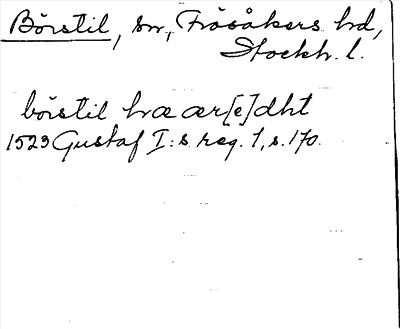 Börstil, sn, Frösåkers hd,
Stockh. l.
börstil hræær[e]dht
1523 Gustaf I:s reg. 1, s. 170.